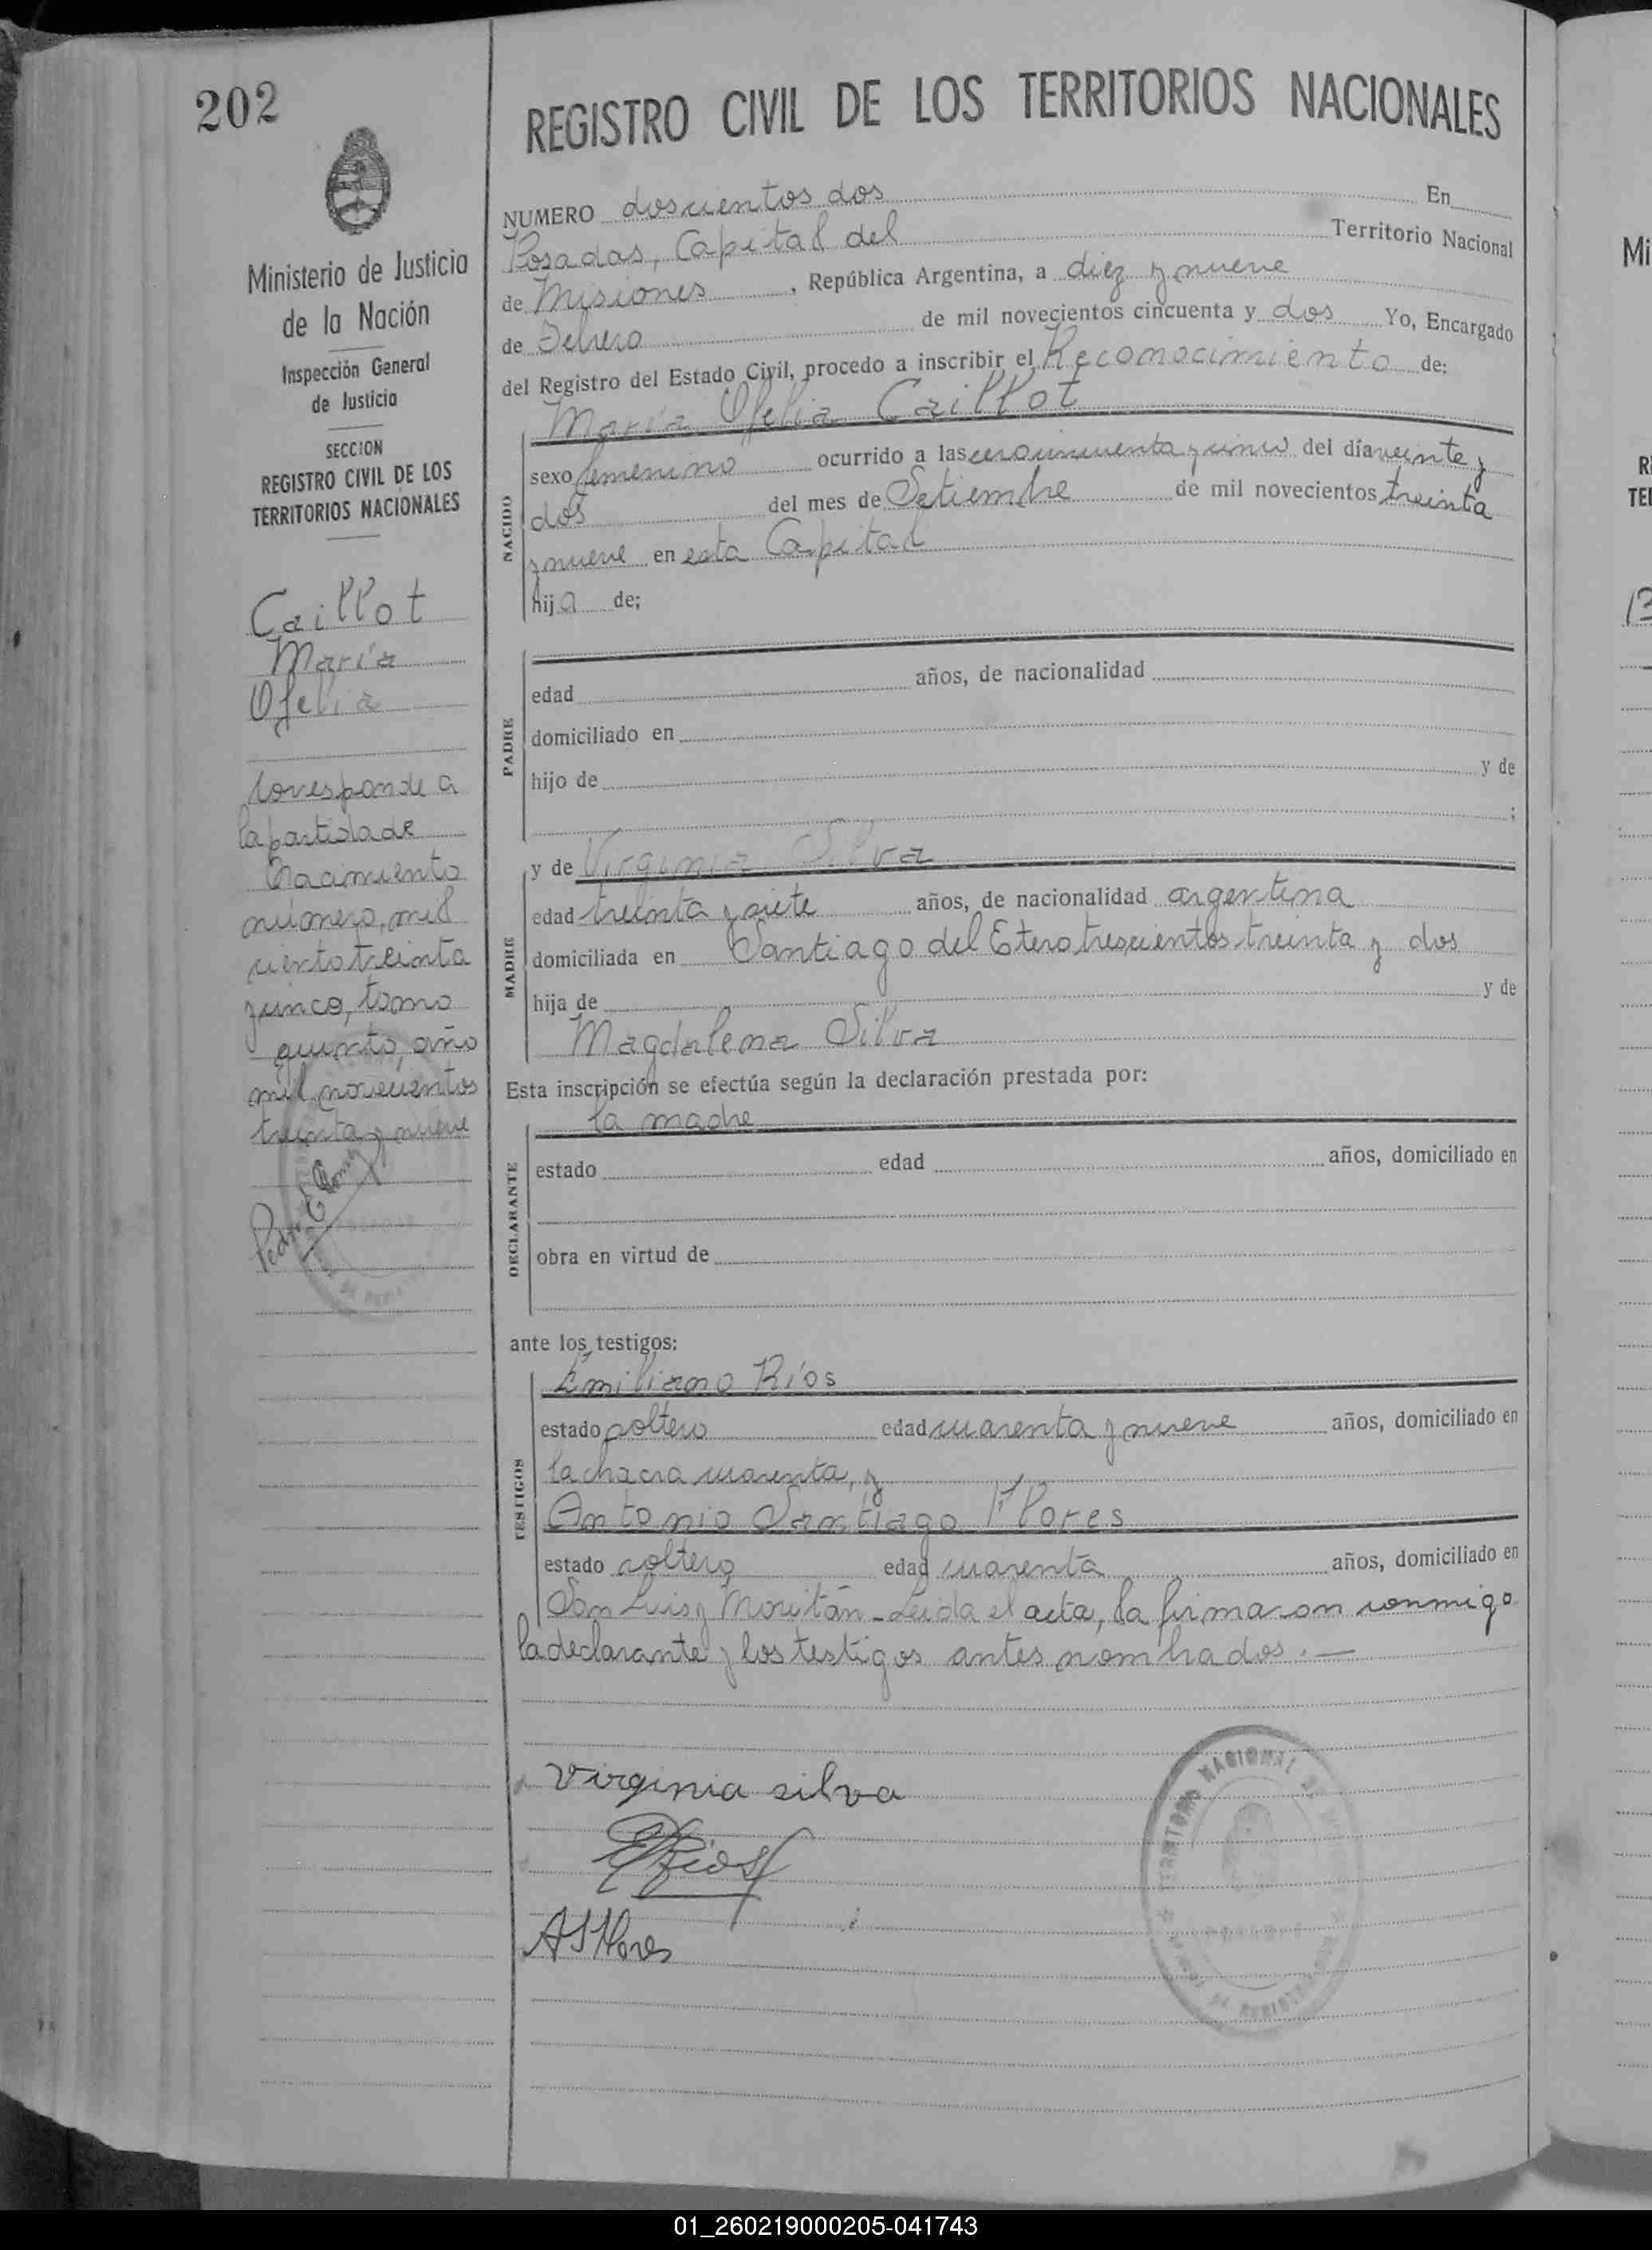 202
Ministerio de Justicia
de la Nación
Inspección General
de Justicia
SECCION
REGISTRO CIVIL DE LOS
TERRITORIOS NACIONALES
Caillot
María
Ofelia
Corresponde a
la partida de
Nacimiento
número, mil
ciento treinta
y cinco, tomo
quinto, año
mil novecientos
treinta y nueve
REGISTRO CIVIL DE LOS TERRITORIOS NACIONALES
NUMERO doscientos dos En
Posadas, Capital del Territorio Nacional
de Misiones, República Argentina, a diez y nueve
de Febrero de mil novecientos cincuenta y dos Yo, Encargado
del Registro del Estado Civil, procedo a inscribir el Reconocimiento de:
María Ofelia Caillot
NACIDO
sexo femenino ocurrido a las cero cincuenta y cinco del día veinte y
dos del mes de Setiembre de mil novecientos treinta
y nueve en esta Capital
hija de;
PADRE
edad años, de nacionalidad
domiciliado en
hijo de y de
;
MADRE
y de Virginia Silva
edad treinta y siete años, de nacionalidad argentina
domiciliada en Santiago del Estero trescientos treinta y dos
hija de y de
Magdalena Silva
Esta inscripción se efectúa según la declaración prestada por:
la madre
DECLARANTE
estado edad años, domiciliado en
obra en virtud de
ante los testigos:
TESTIGOS
Emiliano Ríos
estado soltero edad cuarenta y nueve años, domiciliado en
la chacra cuarenta, y
Antonio Santiago Flores
estado soltero edad cuarenta años, domiciliado en
San Luis y Moritán - Leida el acta, la firmaron conmigo
la declarante y los testigos antes nombrados. —
Virginia silva
ERíos
ASFlores
TERRITORIO NACIONAL DE
01_260219000205-041743